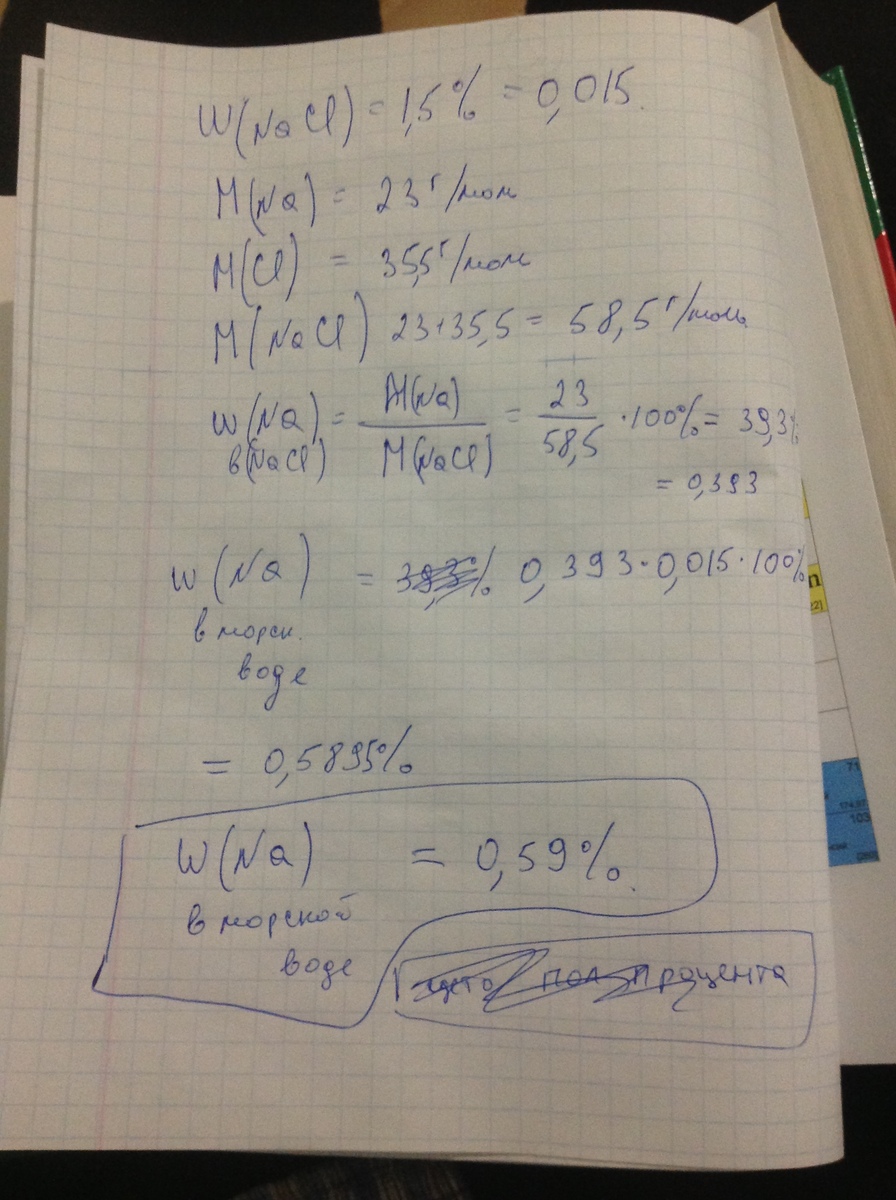 W(NaCl) = 1,5% = 0,015.
M(Na) = 23 г/моль
M(Cl) = 35,5 г/моль
M(NaCl) 23+35,5 = 58,5 г/моль
w(Na) = M(Na) / M(NaCl) = 23 / 58,5 · 100% = 39,3%
в(NaCl)
= 0,393
w(Na) = 39,3% 0,393·0,015·100%
в морск.
воде
= 0,5895%
W(Na) = 0,59%.
в морской
воде
пол процента
n
22]
71
174,97
103